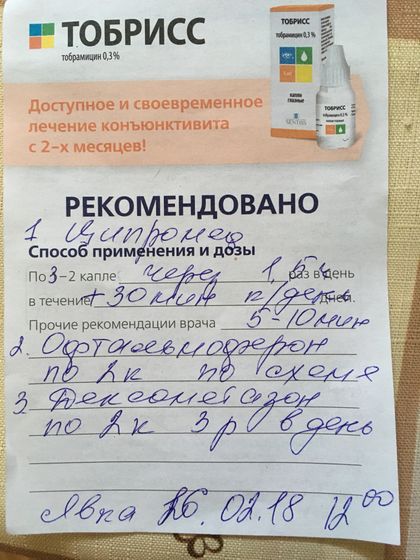 ТОБРИСС
тобрамицин 0,3%
ТОБРИСС
тобрамицин 0,3 %
капли
глазные
SENTISS
ТОБРИСС
Доступное и своевременное
лечение конъюнктивита
с 2-х месяцев!
РЕКОМЕНДОВАНО
1 Ципромед
Способ применения и дозы
По 3-2 капле через 1,5 раз в день
в течение +30 мин п/день дней.
Прочие рекомендации врача 5-10 мин
2. Офтальмоферон
по 2к по схеме
3. Дексаметазон
по 2к 3 р в день
Явка 26.02.18 12 00